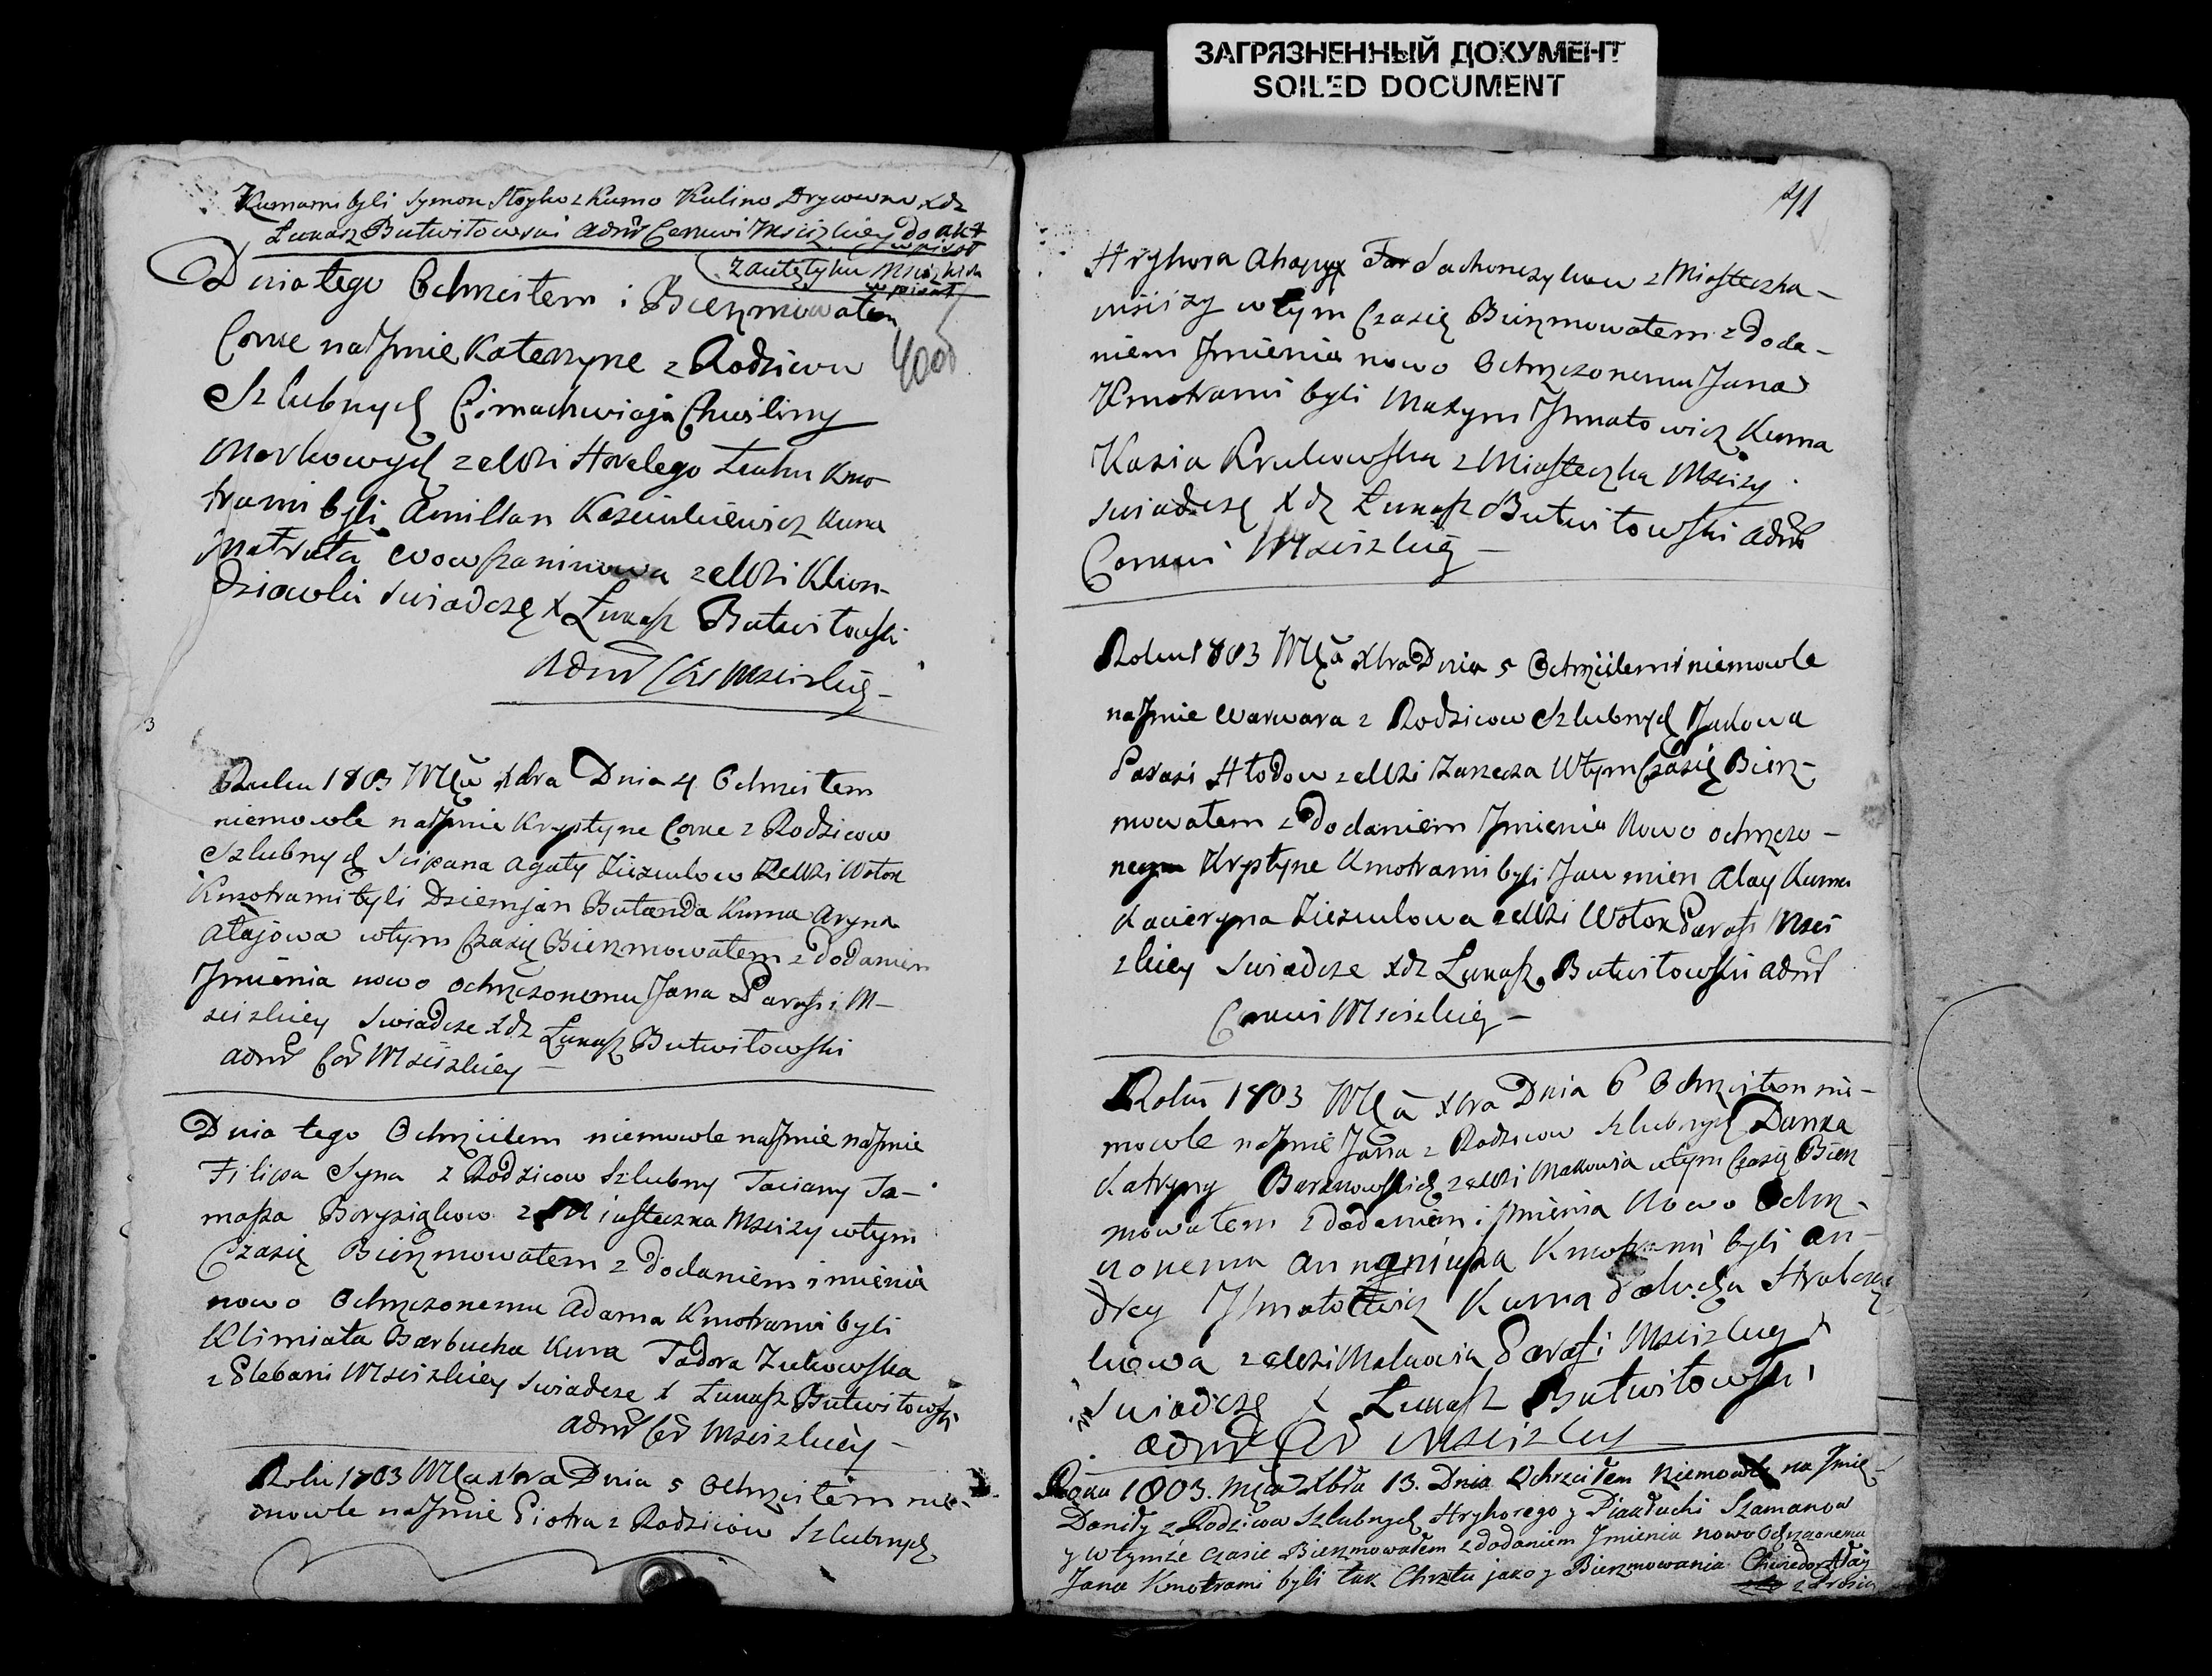 ЗАГРЯЗНЕННЫЙ ДОКУМЕНТ
SOILED DOCUMENT
Kumami byli Symon Stoyko z Kumo Kulino Drycowno Xdz
Łukasz Butwiłowski admr Cerkwi Mscizkiey do akt
wpisał
Dnia tego Ochrzcilem i Bierzmowałem
4000
Corke na Jmie Katerzyne z Rodzicow
Szlubnych Cimachwieja Chwiliny
Markowych zeWsi Horelego Ługu Kmo-
trami byli Amillan Kosciukiewicz Kuma
Matruta Wowszaninowa zeWsi Klion-
dziawki Swiadczę X Łukasz Butwiłowski
Admr Cer Mscizkiej
3
Roku 1803 Mca Xbra Dnia 4 Ochrzciłem
niemowle na Jmie Krystyne Corke z Rodzicow
Szlubnych Scipana Agaty Ziezulow zeWsi Wołok
Kmotrami byli Dziemjan Butanda Kuma Aryna
Ałajowa wtym Czasię Bierzmowałem z dodaniem
Jmienia nowo ochrzczonemu Jana Parafii M-
scizkiey Swiadcze Xdz Łukasz Butwiłowski
admr Cer Mscizkiey
Dnia tego Ochrzcilem niemowle na Jmie na Jmie
Filipa Syna z Rodzicow Szlubny Taciany Ta-
masza Borysiąkow z Miasteczka Mscizy wtym
Czasię Bierzmowałem z dodaniem imienia
nowo Ochrzczonemu Adama Kmotrami byli
Klimiata Barbucha Kuma Todora Zukowska
z Plebani Mscizkiey Swiadcze X Łukasz Butwiłowski
admr Cer Mscizkiey
Roku 1803 Mca Xbra Dnia 5 Ochrzciłem nie-
mowle na Jmie Piotra z Rodzicow Szlubnych
41
Hryhora Ahapy Sachonczykow z Miasteczka
Mscizy wtym Czasię Bierzmowałem z Doda-
niem Jmienia nowo Ochrzczonemu Jana
Kmotrami byli Maxym Jhnatowicz Kuma
Kasia Krukowska z Miasteczka Mscizy
Swiadczę Xdz Łukasz Butwiłowski admr
Cerkwi Mscizkiej
Roku 1803 Mca Xbra Dnia 5 Ochrzcilem niemowle
na Jmie Warwara z Rodzicow Szlubnych Jakowa
Parasi Hłodow zeWsi Zarzecza Wtym Czasię Bierz-
mowałem z Dodaniem Jmienia Nowo ochrzczo-
ney Krystyne Kmotrami byli Jaumien Alay Kuma
Kacieryna Ziezulowa zeWsi Wołok Parafi Msci-
zkiey Swiadcze Xdz Łukasz Butwiłowski admr
Cerkwi Mscizkiej
Roku 1803 Mca Xbra Dnia 6 Ochrzciłem nie-
mowle na Jmie Jana z Rodzicow Szlubnych Daniła
Katryny Baranowskich zeWsi Makowia wtym Czasię Bierz
mowałem z dodaniem imienia Nowo Ochrz-
czonemu Kmotrami byli An-
drey Jhnatowicz Kuma
zeWsi Makowia Parafi Mscizkiey
Swiadczę X Łukasz Butwiłowski
admr Cer Mscizkiey
Roku 1803. Mca Xbra 13. Dnia Ochrzciłem Niemowle na Jmie
Daniły z Rodzicow Szlubnych Hryhorego y Piatruchi Szamanow
y wtymże czasie Bierzmowałem z dodaniem Jmienia nowo Ochrzczonemu
Jana Kmotrami byli tak Chrztu jako y Bierzmowania Chwiedor Ałaj